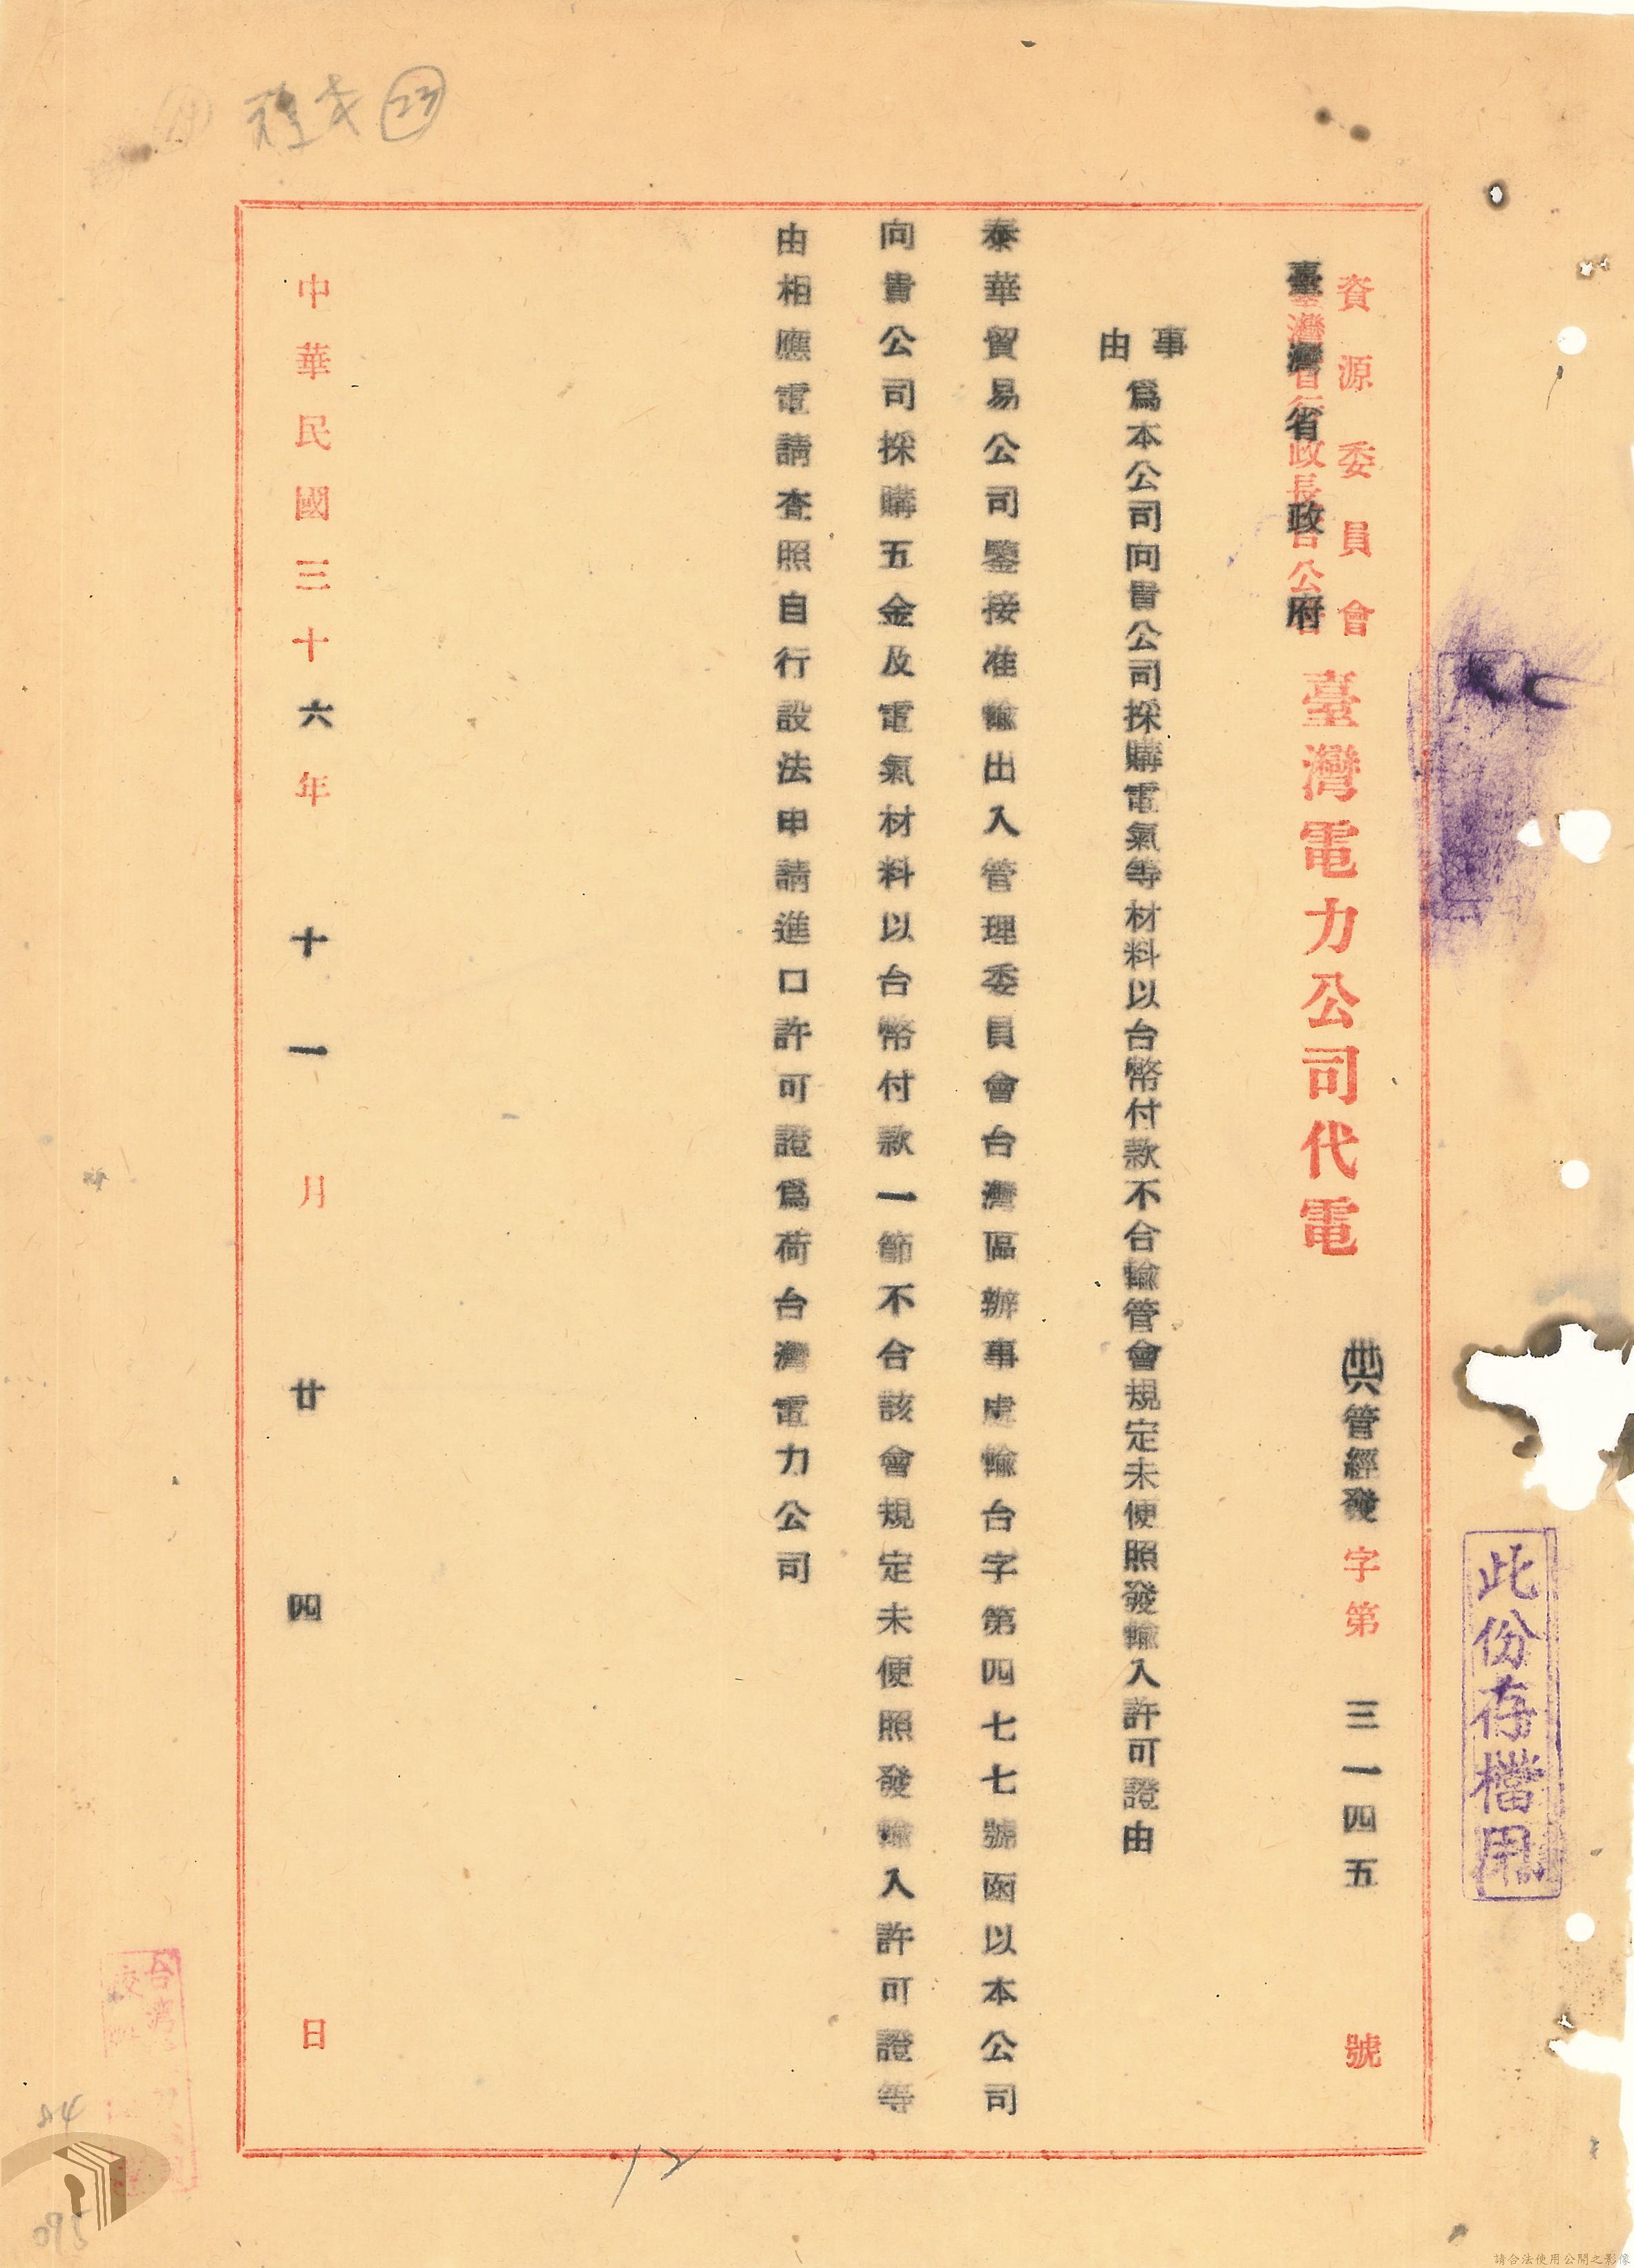 資源委員會
臺灣省政府
臺灣電力公司代電
卅六管經發字第三一四五號
事由
為本公司向貴公司採購電氣等材料以台幣付款不合輸管會規定未便照發輸入許可證由
泰華貿易公司鑒接准輸出入管理委員會台灣區辦事處輸台字第四七七號函以本公司
向貴公司採購五金及電氣材料以台幣付款一節不合該會規定未便照發輸入許可證等
由相應電請查照自行設法申請進口許可證為荷台灣電力公司
中華民國三十六年十一月廿四日
此份存檔用
23
請合法使用公開之影像